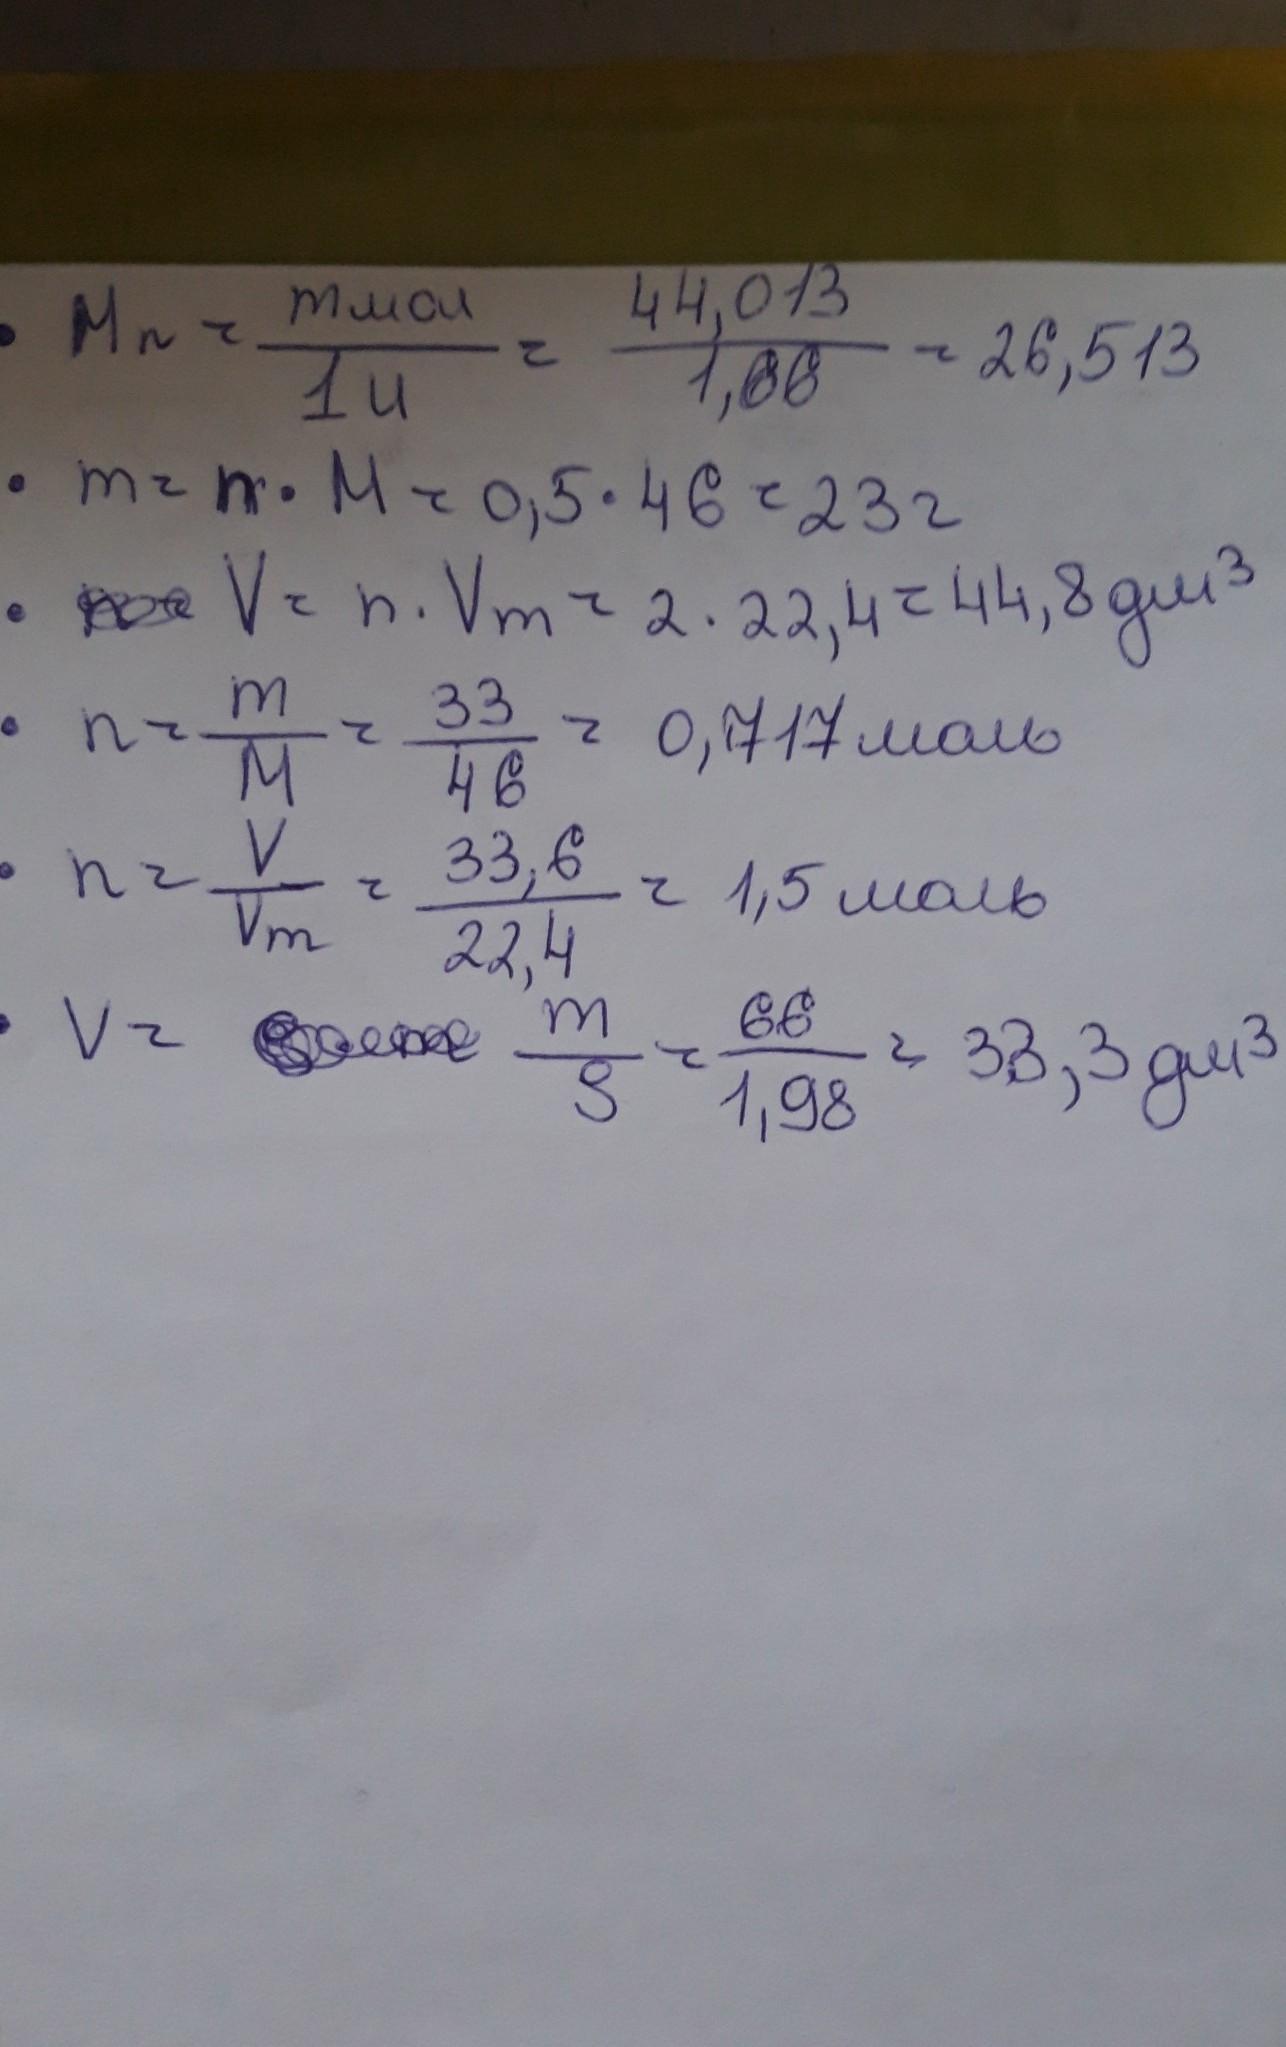 • Mr = mмол / 1u = 44,013 / 1,66 = 26,513
• m = n · M = 0,5 · 46 = 23 г
• V = n · Vm = 2 · 22,4 = 44,8 дм³
• n = m / M = 33 / 46 = 0,717 моль
• n = V / Vm = 33,6 / 22,4 = 1,5 моль
• V = m / S = 66 / 1,98 = 33,3 дм³